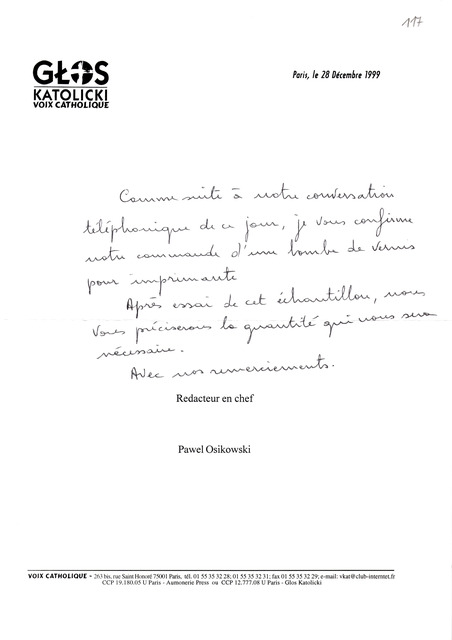 117
GŁOS
KATOLICKI
VOIX CATHOLIQUE
Paris, le 28 Décembre 1999
Comme suite à notre conversation
téléphonique de ce jour, je vous confirme
notre commande d'une bombe de vernis
pour imprimante
Après essai de cet échantillon, nous
vous préciserons la quantité qui nous sera
nécessaire.
Avec nos remerciements.
Redacteur en chef
Pawel Osikowski
VOIX CATHOLIQUE - 263 bis, rue Saint Honoré 75001 Paris, tél. 01 55 35 32 28; 01 55 35 32 31; fax 01 55 35 32 29; e-mail: vkat@club-internet.fr
CCP 19.180.05 U Paris - Aumonerie Press ou CCP 12.777.08 U Paris - Glos Katolicki